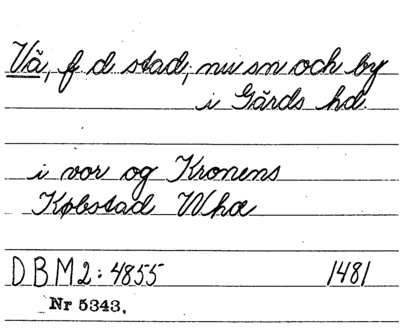 Vä, f d stad, nu sn och by
i Gärds hd.
i vor og Kronens
Købstad Whæ
DBM2: 4855 1481
Nr 5343.